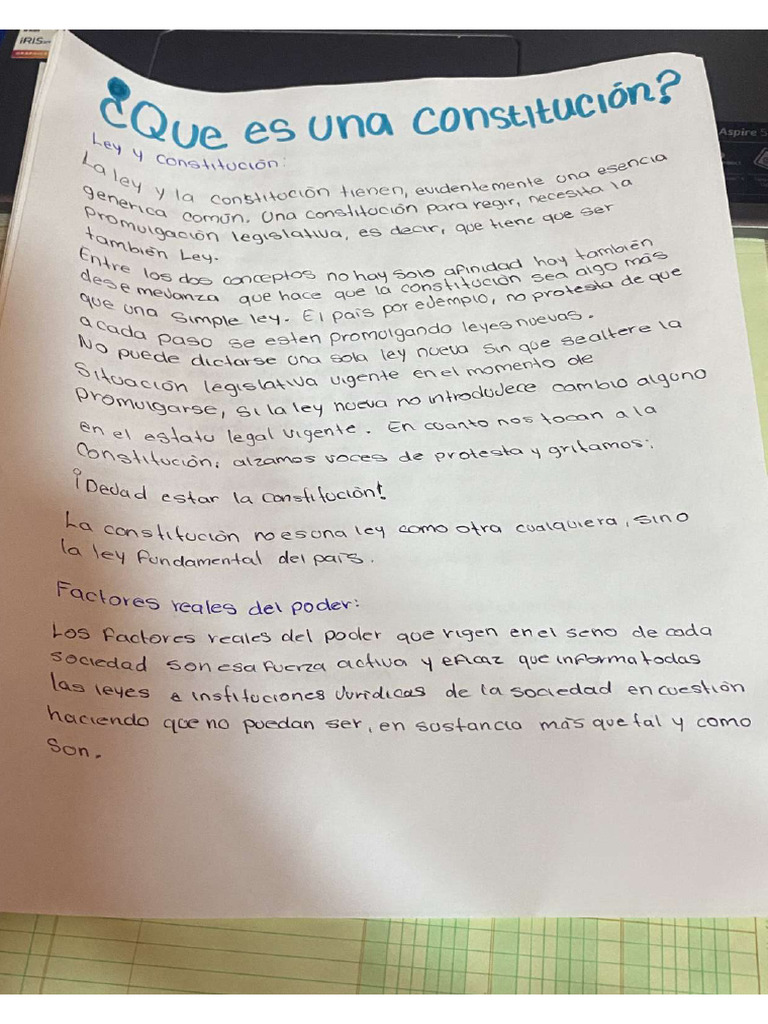 iRIS
Aspire 5
¿Que es una constitución?
Ley y constitución:
La ley y la constitución tienen, evidentemente una esencia
generica común. Una constitución para regir, necesita la
promulgación legislativa, es decir, que tiene que ser
también Ley.
Entre los dos conceptos no hay solo afinidad hay también
desemejanza que hace que la constitución sea algo más
que una simple ley. El país por ejemplo, no protesta de que
a cada paso se esten promulgando leyes nuevas.
No puede dictarse una sola ley nueva sin que sealtere la
Situación legislativa vigente en el momento de
promulgarse, si la ley nueva no introdujece cambio alguno
en el estatu legal vigente. En cuanto nos tocan a la
Constitución, alzamos voces de protesta y gritamos:
¡Dedad estar la constitución!
La constitución no es una ley como otra cualquiera, sino
la ley fundamental del país.
Factores reales del poder:
Los factores reales del poder que rigen en el seno de cada
sociedad son esa fuerza activa y eficaz que informa todas
las leyes e instituciones juridicas de la sociedad en cuestión
haciendo que no puedan ser, en sustancia más que tal y como
son.